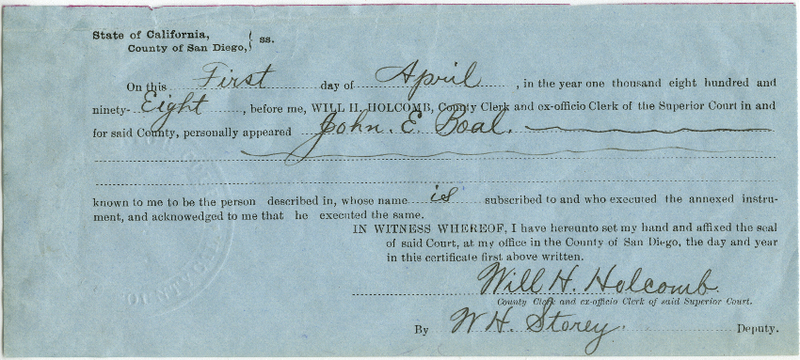 State of California,
County of San Diego, } ss.
On this First day of April, in the year one thousand eight hundred and
ninety-Eight, before me, WILL H. HOLCOMB, County Clerk and ex-officio Clerk of the Superior Court in and
for said County, personally appeared John. E. Boal.
known to me to be the person described in, whose name is subscribed to and who executed the annexed instru-
ment, and acknowedged to me that he executed the same.
IN WITNESS WHEREOF, I have hereunto set my hand and affixed the seal
of said Court, at my office in the County of San Diego, the day and year
in this certificate first above written.
Will H. Holcomb.
County Clerk and ex-officio Clerk of said Superior Court.
By W. H. Storey. Deputy.